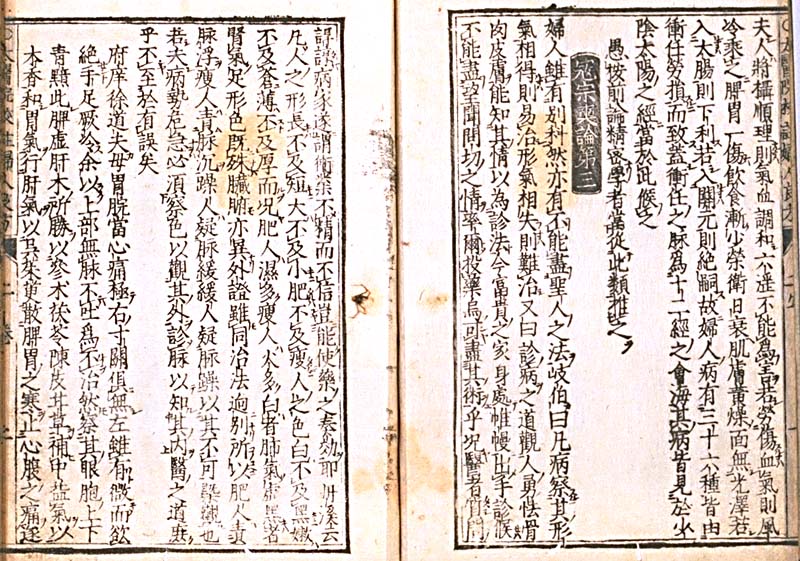 夫人將攝順理則氣血調和六淫不能爲害若勞傷血氣則風
冷乘之脾胃一傷飲食漸少榮衛日衰肌膚黄燥面無光澤若
入大腸則下利若入關元則絕嗣故婦人病有三十六種皆由
衝任勞損而致蓋衝任之脉為十二經之會海其病皆見於少
陰太陽之經當於此候之
愚按前論精密學者當從此類推之
寇宗奭論第三
婦人雖有別科然亦有不能盡聖人之法岐伯曰凡病察其形
氣相得則易治形氣相失則難治又曰診病之道觀人勇怯骨
肉皮膚能知其情以為診法今富貴之家身處帷幔手診候
不能盡望聞問切之情率爾投藥烏可盡其術乎况醫者質問
諄諄病家遂謂術業不精而不信豈能使藥之奏効耶丹溪云
凡人之形長不及短大不及小肥不及瘦人之色白不及黑嫩
不及蒼薄不及厚而况肥人濕多瘦人火多白者肺氣虛黑者
腎氣足形色既殊臟腑亦異外證雖同治法迥別所以肥人責
脉浮瘦人責脉沉躁人疑脉緩緩人疑脉躁以其不可槩觀也
若夫病勢危急必須察色以觀其外診脉以知其內醫之道庶
乎不至於有誤矣
府庠徐道夫母胃脘當心痛極右寸關俱無左雖有微而欲
絕手足厥冷余以上部無脉不吐爲不治然察其眼胞上下
青黯此脾虛肝木所勝以參朮茯苓陳皮甘草補中益氣以
木香和胃氣行肝氣以吳茱萸散脾胃之寒止心腹之痛